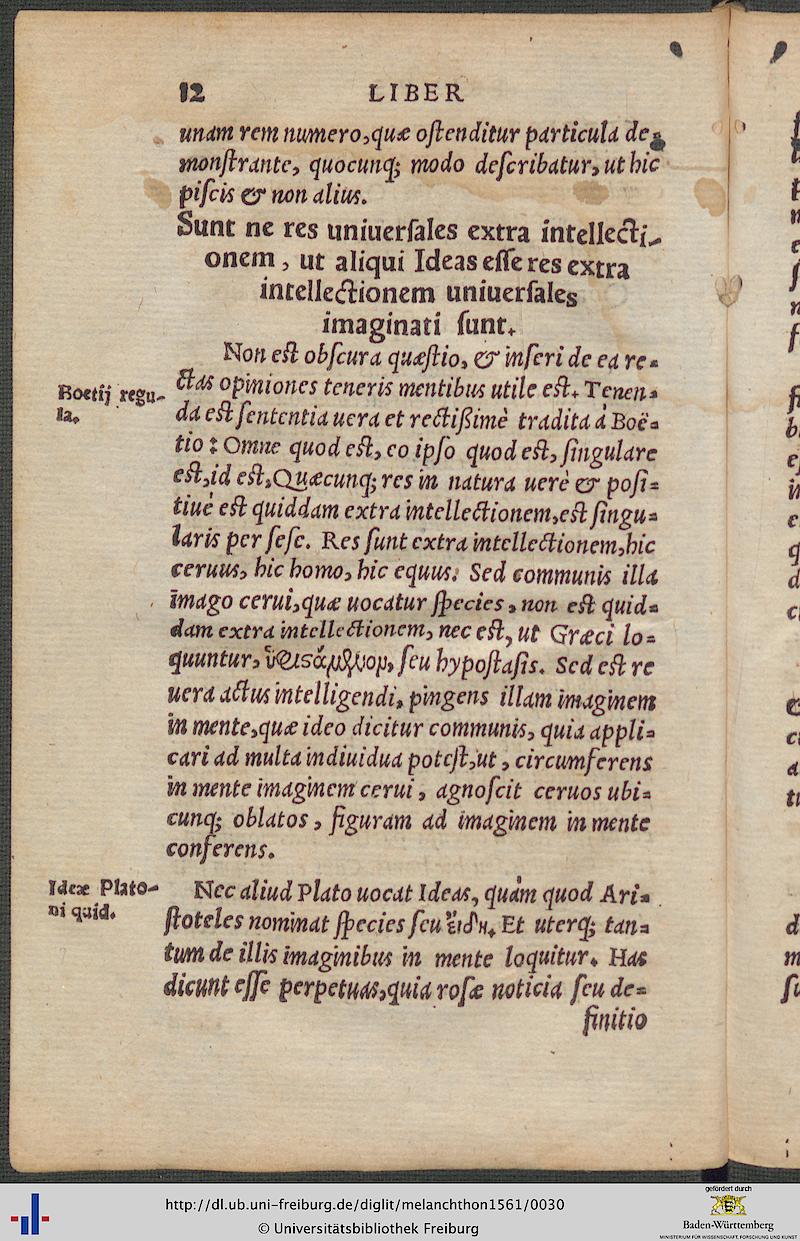 12 LIBER
unam rem numero, quæ ostenditur particula de⸗
monstrante, quocunq; modo describatur, ut hic
piscis & non alius.
Sunt ne res uniuersales extra intellecti⸗
onem, ut aliqui Ideas esse res extra
intellectionem uniuersales
imaginati sunt.
Non est obscura quæstio, & inseri de ea re⸗
Boetij regu⸗
la.
ctas opiniones teneris mentibus utile est. Tenen⸗
da est sententia uera et rectißimè tradita à Boë⸗
tio: Omne quod est, eo ipso quod est, singulare
est, id est, Quæcunq; res in natura uerè & posi⸗
tiuè est quiddam extra intellectionem, est singu⸗
laris per sese. Res sunt extra intellectionem, hic
ceruus, hic homo, hic equus. Sed communis illa
imago cerui, quæ uocatur species, non est quid⸗
dam extra intellectionem, nec est, ut Græci lo⸗
quuntur, ὑφιστάμενον, seu hypostasis. Sed est re
uera actus intelligendi, pingens illam imaginem
in mente, quæ ideo dicitur communis, quia appli⸗
cari ad multa indiuidua potest, ut, circumferens
in mente imaginem cerui, agnoscit ceruos ubi⸗
cunq; oblatos, figuram ad imaginem in mente
conferens.
Ideæ Plato⸗
ni quid.
Nec aliud Plato uocat Ideas, quàm quod Ari⸗
stoteles nominat species seu εἴδη. Et uterq; tan⸗
tum de illis imaginibus in mente loquitur. Has
dicunt esse perpetuas, quia rosæ noticia seu de⸗
finitio
http://dl.ub.uni-freiburg.de/diglit/melanchthon1561/0030
© Universitätsbibliothek Freiburg
gefördert durch
Baden-Württemberg
MINISTERIUM FÜR WISSENSCHAFT, FORSCHUNG UND KUNST